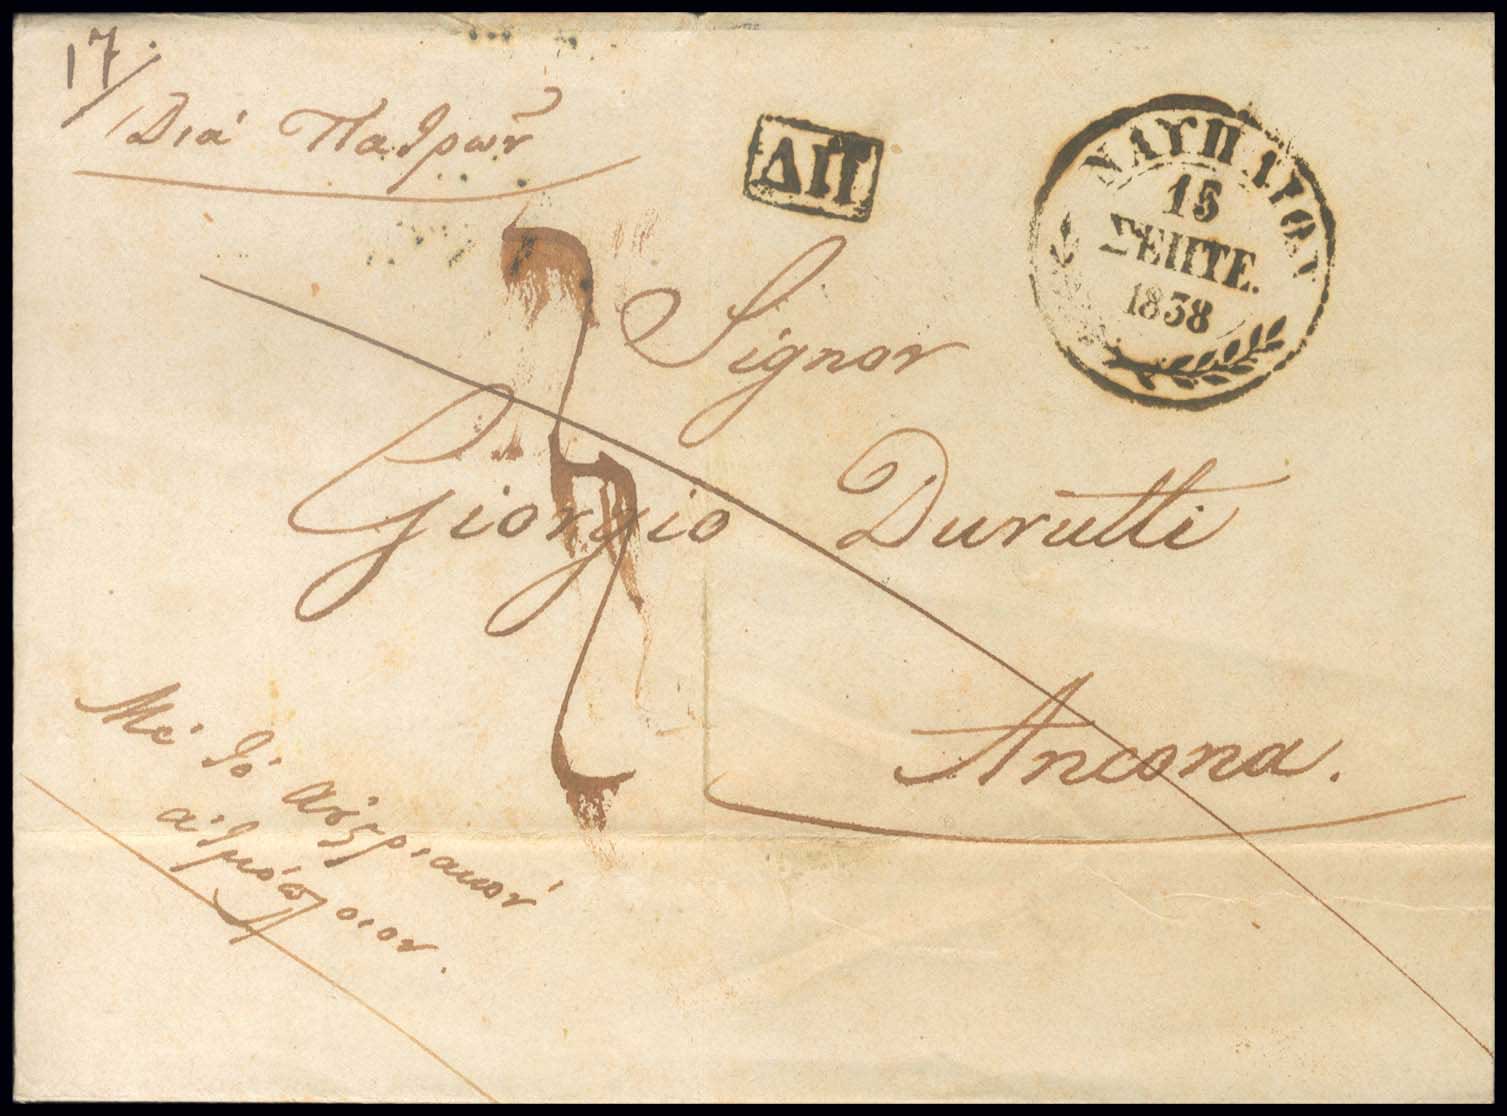 17.
Διά Πατρών
ΔΠ
15
ΣΕΠΤΕ.
1838
Signor
Giorgio Durutti
Ancona.
Μέ τό αύςριακόν
ατμόπλοιον.